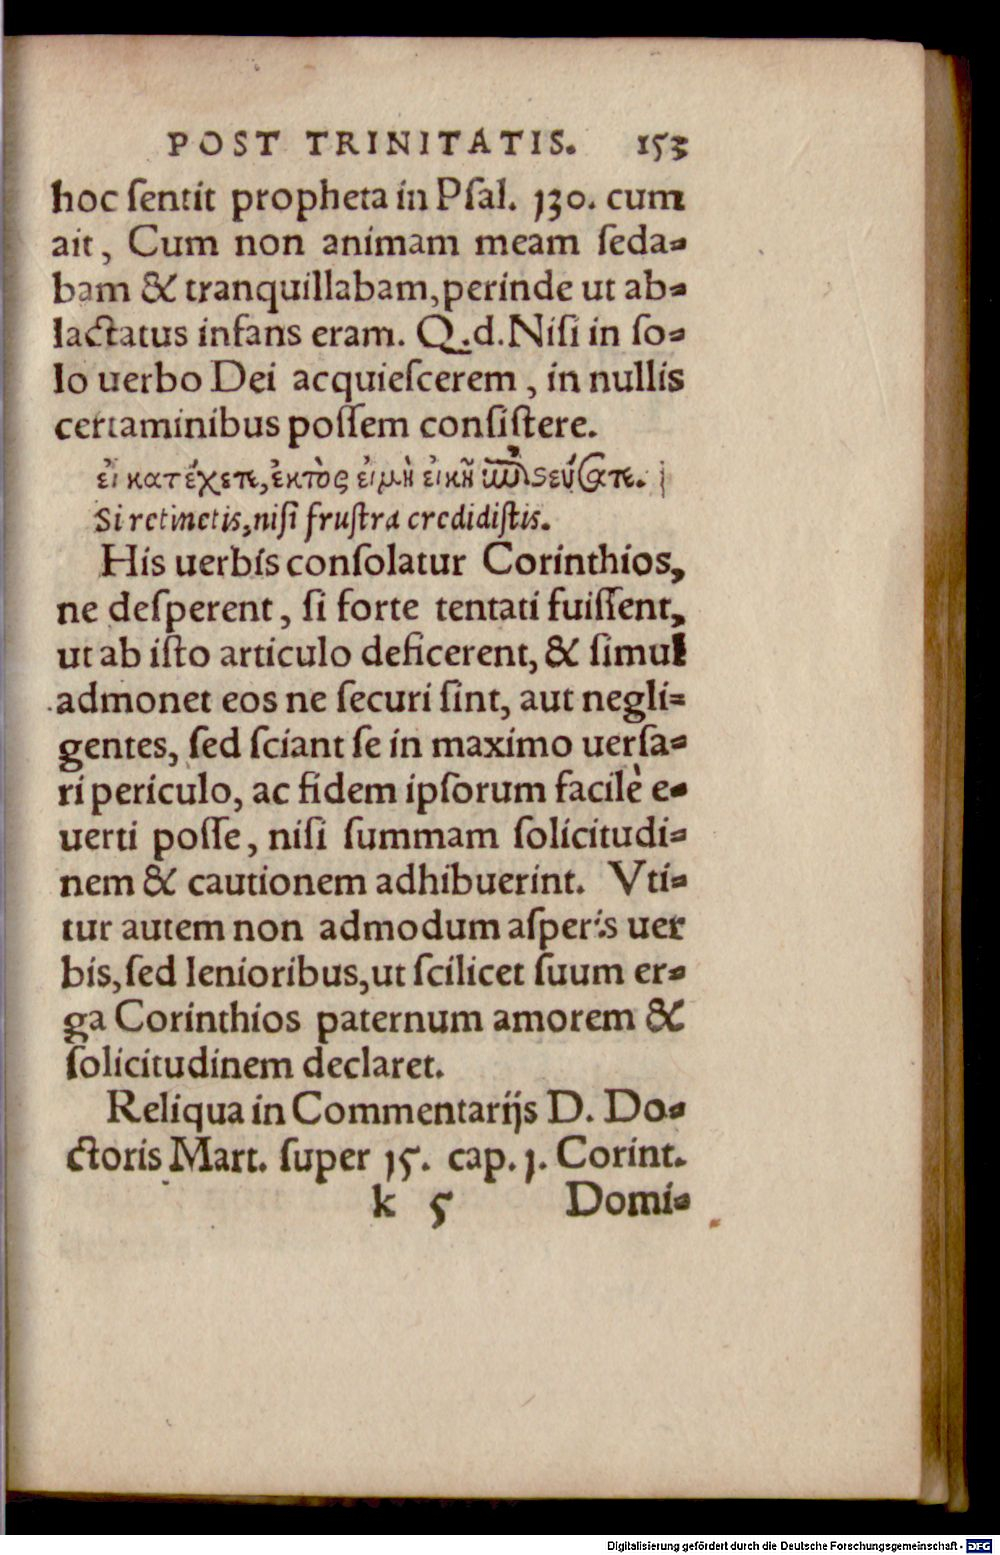 POST TRINITATIS. 153
hoc ſentit propheta in Pſal. 130. cum
ait, Cum non animam meam ſeda-
bam & tranquillabam, perinde ut ab-
lactatus infans eram. Q.d. Niſi in ſo-
lo uerbo Dei acquieſcerem, in nullis
certaminibus poſſem conſiſtere.
εἰ κατέχετε, ἐκτὸς εἰμὴ εἰκῆ ἐπιστεύσατε.
Si retinetis, niſi fruſtra credidiſtis.
His uerbis conſolatur Corinthios,
ne deſperent, ſi forte tentati fuiſſent,
ut ab iſto articulo deficerent, & ſimul
admonet eos ne ſecuri ſint, aut negli-
gentes, ſed ſciant ſe in maximo uerſa-
ri periculo, ac fidem ipſorum facilè e-
uerti poſſe, niſi ſummam ſolicitudi-
nem & cautionem adhibuerint. Vti-
tur autem non admodum aſperis uer
bis, ſed lenioribus, ut ſcilicet ſuum er-
ga Corinthios paternum amorem &
ſolicitudinem declaret.
Reliqua in Commentarijs D. Do-
ctoris Mart. ſuper 15. cap. 1. Corint.
k 5 Domi-
Digitalisierung gefördert durch die Deutsche Forschungsgemeinschaft - DFG